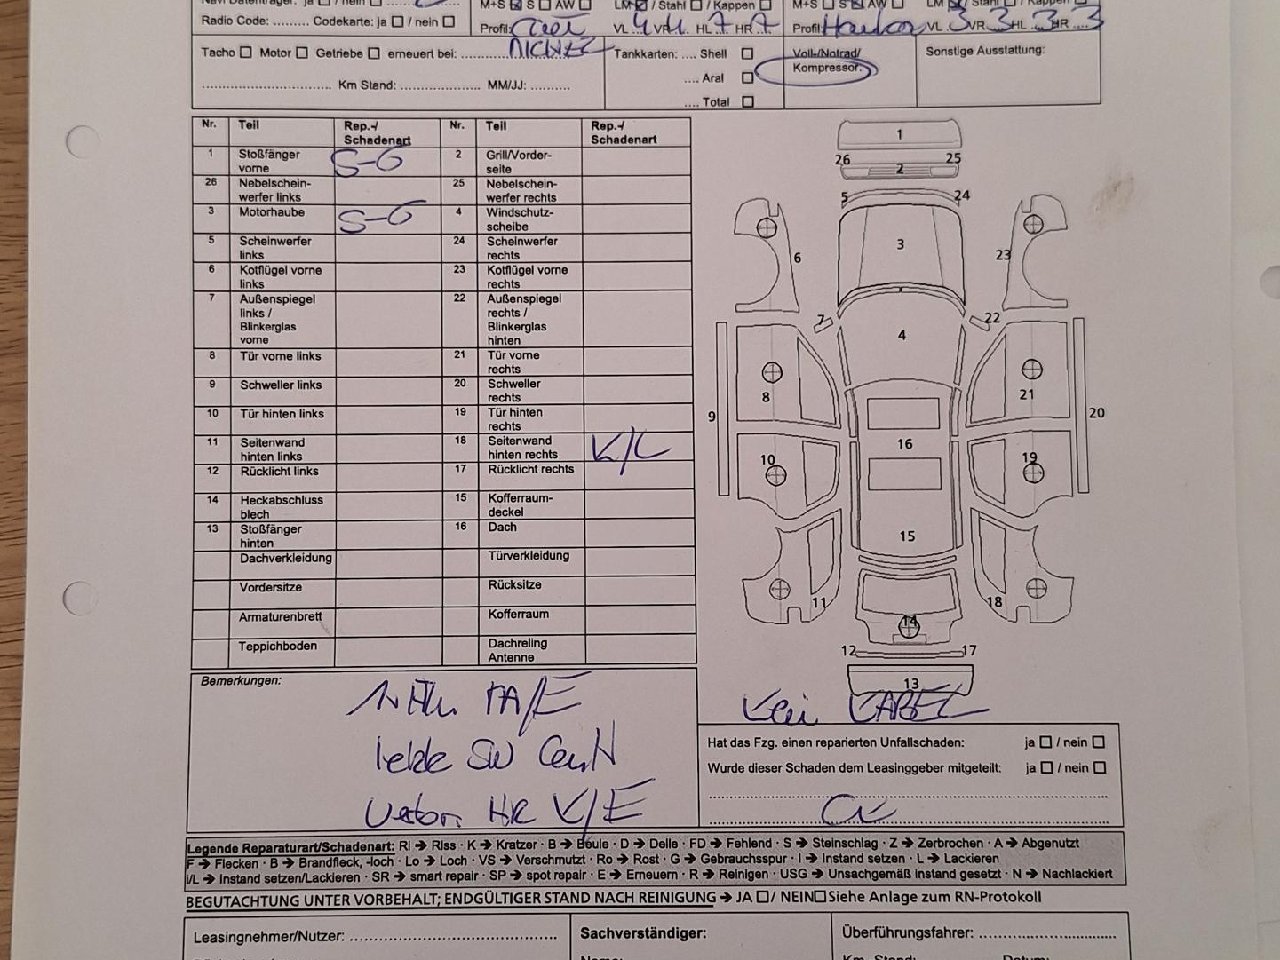 M+S S AW LM / Stahl / Kappen M+S S
Radio Code: ......... Codekarte: ja / nein Profil: VL 4 VR 4 HL 7 HR 7 Profil: VL 3 VR 3 HL 3 HR 3
Tacho Motor Getriebe erneuert bei: Tankkarten: .... Shell Voll-/Notrad/ Sonstige Ausstattung:
.... Aral Kompressor:
Km Stand: MM/JJ:
.... Total
Nr. Teil Rep.-/ Schadenart Nr. Teil Rep.-/ Schadenart
1 Stoßfänger vorne S-G 2 Grill/Vorderseite
26 Nebelscheinwerfer links 25 Nebelscheinwerfer rechts
3 Motorhaube S-G 4 Windschutzscheibe
5 Scheinwerfer links 24 Scheinwerfer rechts
6 Kotflügel vorne links 23 Kotflügel vorne rechts
7 Außenspiegel links / Blinkerglas vorne 22 Außenspiegel rechts / Blinkerglas hinten
8 Tür vorne links 21 Tür vorne rechts
9 Schweller links 20 Schweller rechts
10 Tür hinten links 19 Tür hinten rechts
11 Seitenwand hinten links 18 Seitenwand hinten rechts K/L
12 Rücklicht links 17 Rücklicht rechts
14 Heckabschluss blech 15 Kofferraumdeckel
13 Stoßfänger hinten 16 Dach
Dachverkleidung Türverkleidung
Vordersitze Rücksitze
Armaturenbrett Kofferraum
Teppichboden Dachreling Antenne
1
26 2 25
5 24
3
6 23
7 22
4
8 21
9 20
16
10 19
15
11 18
14
12 17
13
Bemerkungen:
Kein KABEL
HR K/E
Hat das Fzg. einen reparierten Unfallschaden: ja / nein
Wurde dieser Schaden dem Leasinggeber mitgeteilt: ja / nein
Legende Reparaturart/Schadenart: RI → Riss · K → Kratzer · B → Beule · D → Delle · FD → Fehlend · S → Steinschlag · Z → Zerbrochen · A → Abgenutzt
F → Flecken · B → Brandfleck, -loch · Lo → Loch · VS → Verschmutzt · Ro → Rost · G → Gebrauchsspur · I → Instand setzen · L → Lackieren
I/L → Instand setzen/Lackieren · SR → smart repair · SP → spot repair · E → Erneuern · R → Reinigen · USG → Unsachgemäß instand gesetzt · N → Nachlackiert
BEGUTACHTUNG UNTER VORBEHALT; ENDGÜLTIGER STAND NACH REINIGUNG → JA / NEIN Siehe Anlage zum RN-Protokoll
Leasingnehmer/Nutzer: Sachverständiger: Überführungsfahrer: